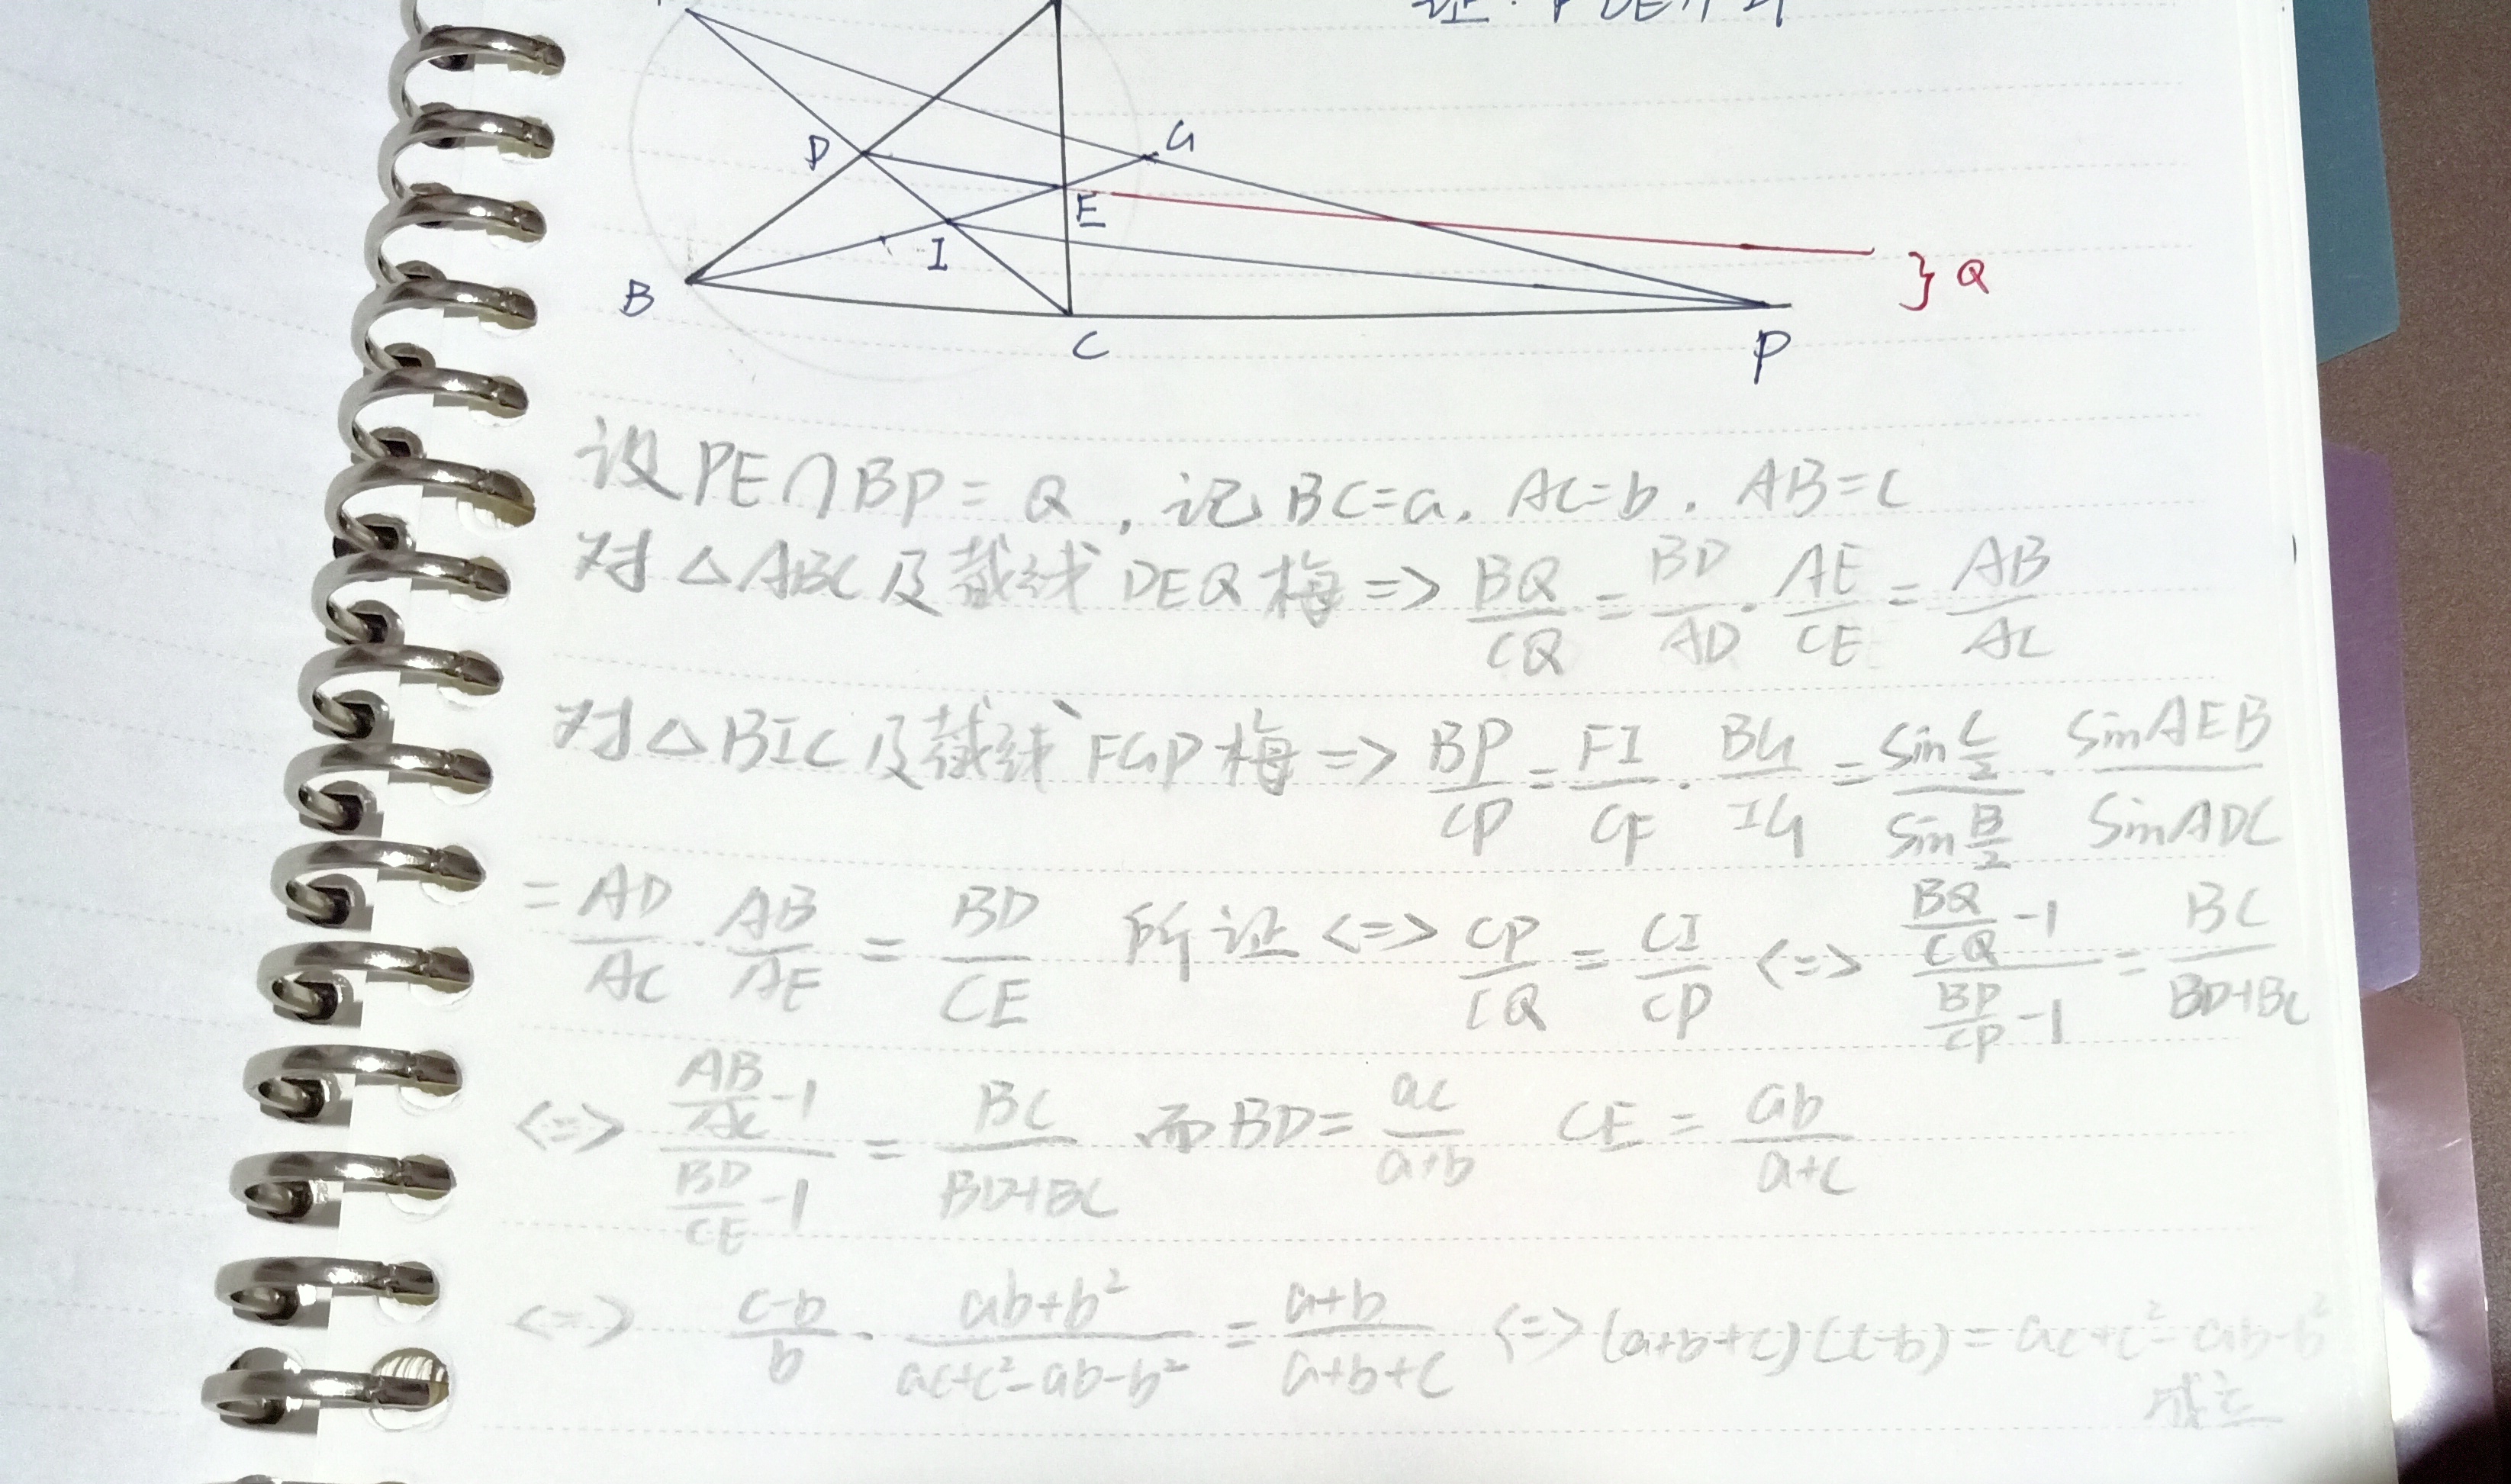 D
G
E
I
Q
B
C
P
设PE∩BP=Q,记BC=a,AC=b,AB=c
对△ABC及截线DEQ梅=> BQ/CQ = BD/AD · AE/CE = AB/AC
对△BIC及截线FGP梅=> BP/CP = FI/CF · BG/IG = sin C/2 / sin B/2 · sinAEB/sinADC
= AD/AC · AB/AE = BD/CE 所证<=> CP/CQ = CI/CP <=> (BQ/CQ -1)/(BP/CP -1) = BC/(BD+BC)
<=> (AB/AC -1)/(BD/CE -1) = BC/(BD+BC) 而BD= ac/(a+b) CE = ab/(a+c)
<=> (c-b)/b · (ab+b²)/(ac+c²-ab-b²) = (a+b)/(a+b+c) <=> (a+b+c)(c-b) = ac+c²-ab-b²
成立